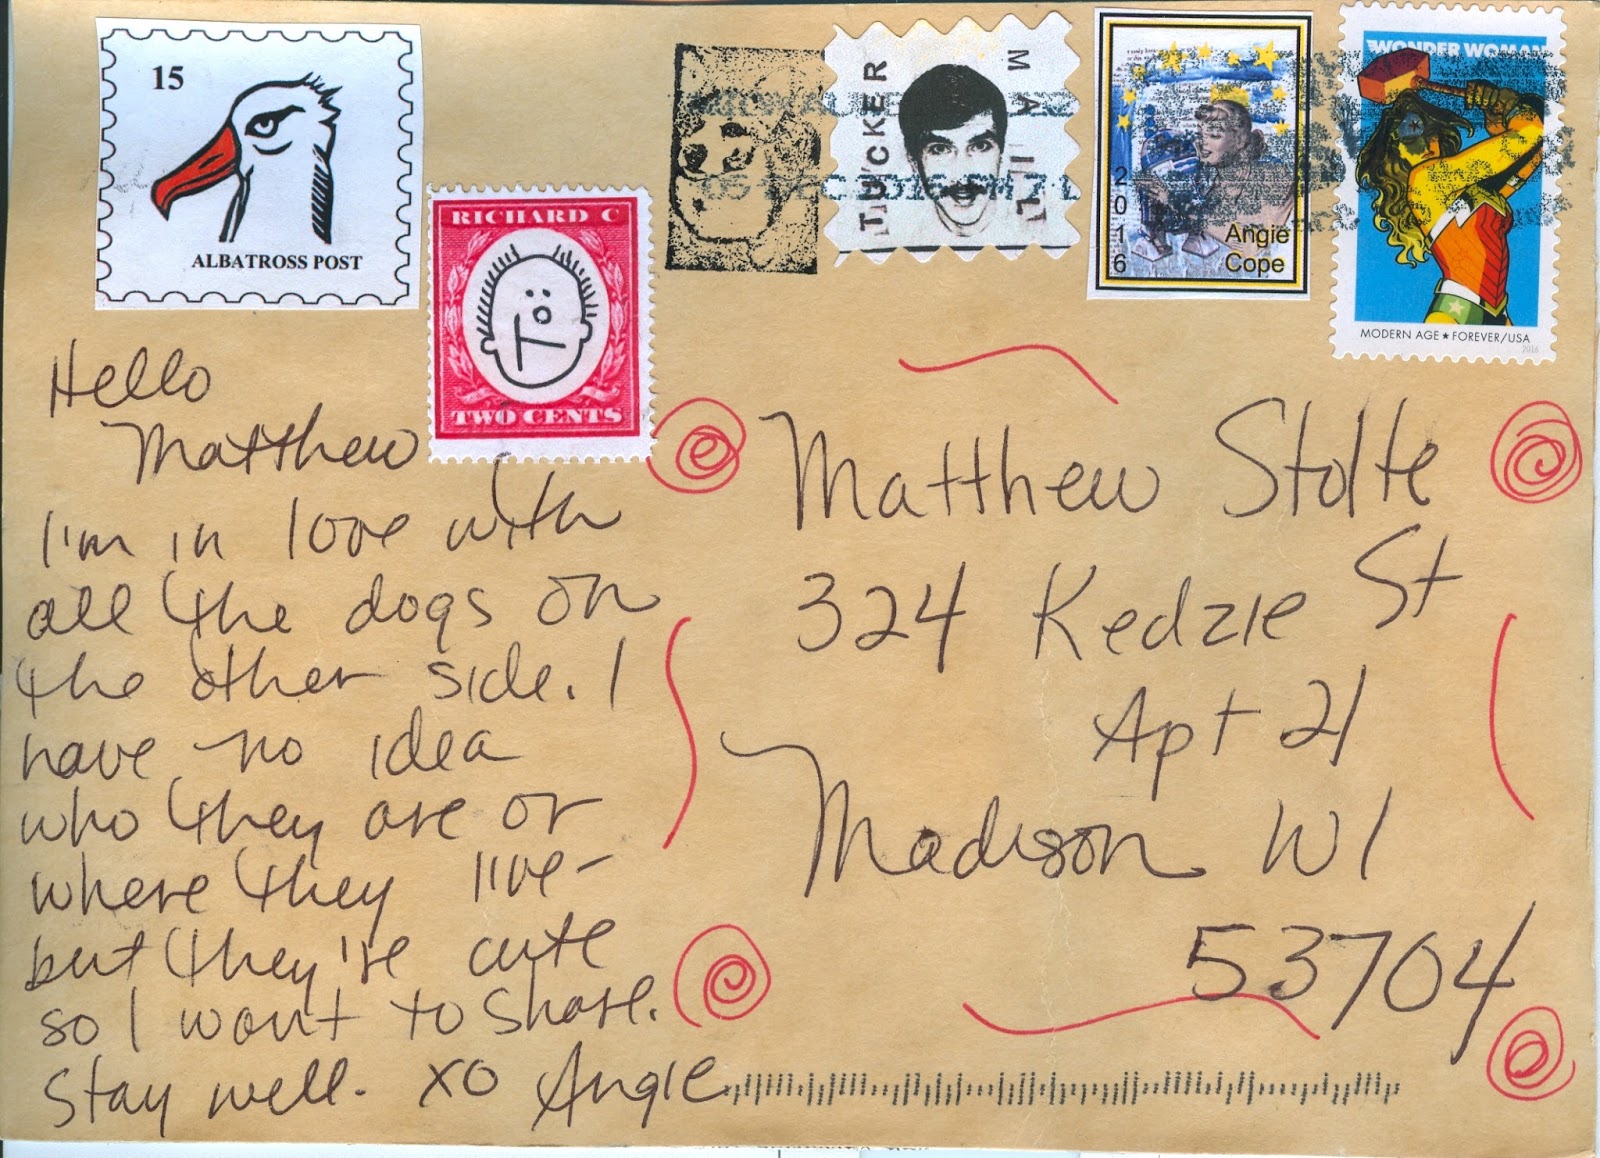 15
ALBATROSS POST
RICHARD C
TWO CENTS
TUCKER
MAIL
2016
Angie
Cope
WONDER WOMAN
MODERN AGE ★ FOREVER/USA
2016
Hello
Matthew
I'm in love with
all the dogs on
the other side. I
have no idea
who they are or
where they live-
but they're cute
so I want to share.
Stay well. XO Angie
Matthew Stolte
324 Kedzie St
Apt 21
Madison WI
53704